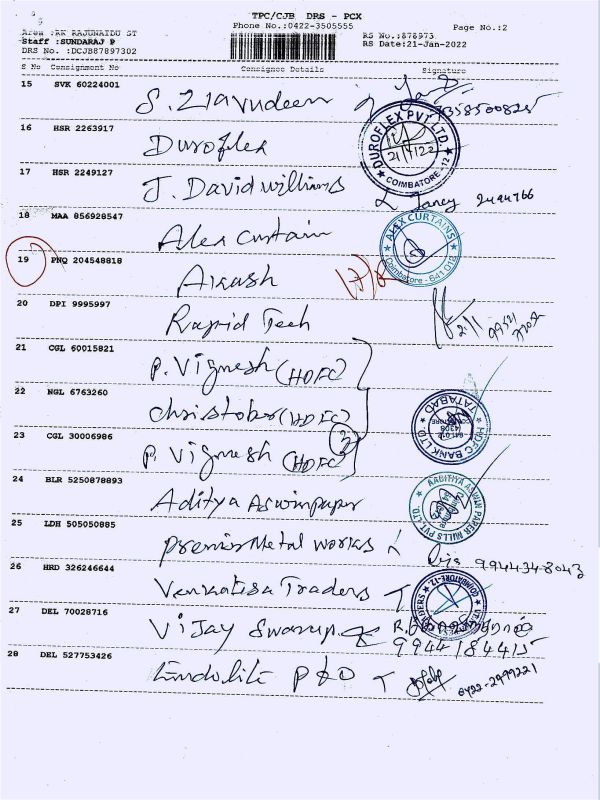 TPC/CJB DRS - PCX
Phone No.:0422-3505555
Page No.:2
Area :RK RAJUNAIDU ST
Staff :SUNDARAJ P
DRS No. :DCJB87897302
RS No.:878973
RS Date:21-Jan-2022
S No Consignment No Consignee Details Signature
15 SVK 60224001
S. Ziavudeen
16 HSR 2263917
Duroflex
DUROFLEX PVT. LTD.
COIMBATORE -12
17 HSR 2249127
J. David williams
18 MAA 856928547
Alex Curtain
ALEX CURTAINS
Coimbatore - 641 012
19 PNQ 204548818
Akash
20 DPI 9995997
Rapid Tech
21 CGL 60015821
P. Vignesh (HDFC)
22 NGL 6763260
Christober (HDFC)
HDFC BANK LTD.
23 CGL 30006986
P. Vignesh (HDFC)
3
24 BLR 5250878893
Aditya Aswinpaper
AADITHYA ASWIN PAPER MILLS PVT. LTD.
25 LDH 505050885
Premier Metal works
9944348043
26 HRD 326246644
Venkatisa Traders
COIMBATORE-12
27 DEL 70028716
Vijay Swarup
9944184415
28 DEL 527753426
Endolite P&O
0422-2999221